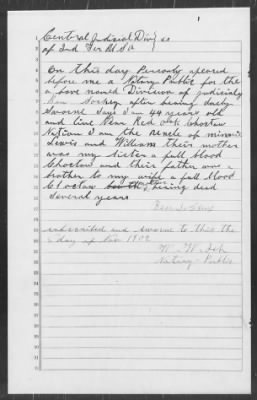 1
Central Judicial Div } ss
of Ind Ter U.S.A
On this day Personly apeared
before me a Notary Public for the
a bove named Divission of judicialy
after being duly
Sworne Says I am 44 years old
and live Near Red Oak Choctaw
Nation I am the uncle of minors
Lewis and William their mother
was my sister a full blood
Choctaw and their father was a
brother to my wife a full blood
Choctaw both being ded
several years
subscribed and sworne to this the
day of Nov 1902
W. W.
Notary-Public